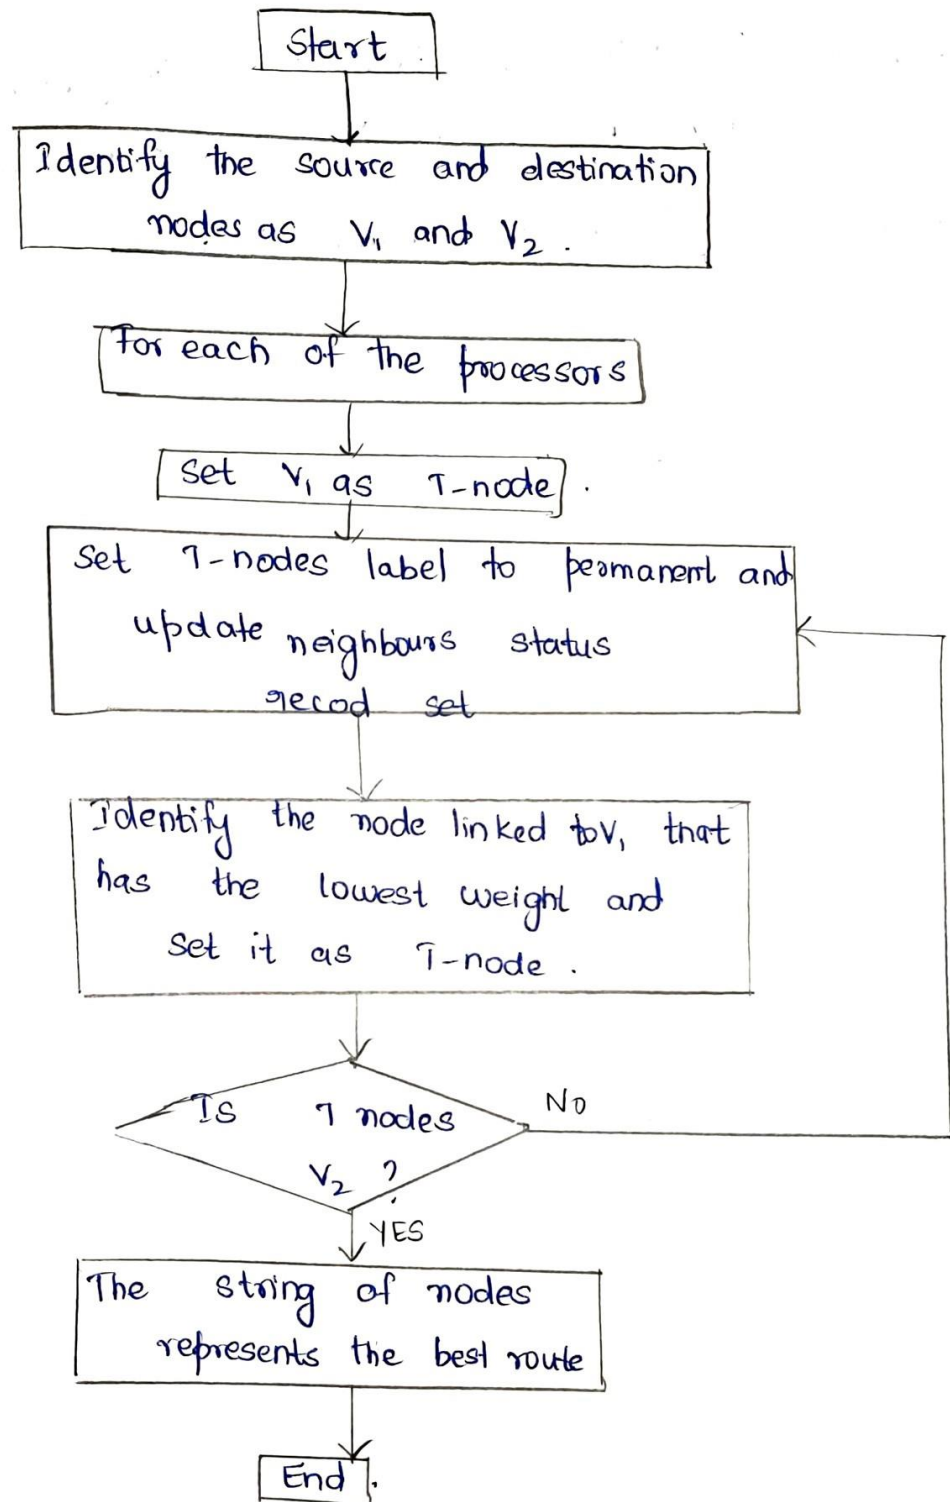 Start
Identify the source and destination
nodes as V₁ and V₂.
For each of the processors
Set V₁ as T-node.
Set T-nodes label to permanent and
update neighbours status
recod set
Identify the node linked to V₁ that
has the lowest weight and
Set it as T-node.
Is T nodes
V₂ ?
No
YES
The string of nodes
represents the best route
End.